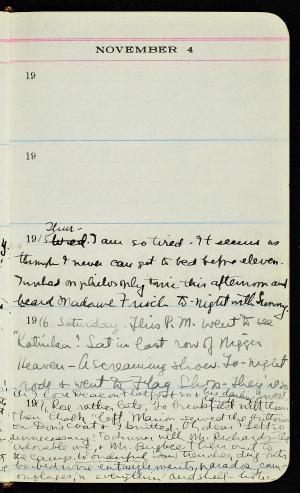 NOVEMBER 4
19
19
Thur -
1915 Wed. I am so tired. It seems as
though I never can get to bed before eleven.
on philosophy this afternoon and
heard Madame Frisch to-night with
1916. Saturday - This P.M. went to see
"Katinka". Sat in last row of Nigger
Heaven - A screaming show. To-night
rode & went to Flag Shop - they
1917. Roe rather late, To breakfast with them.
then Chalk left. Mason sewed the buttons
on Don's coat & I knitted. Oh dear!
unnecessary! To dinner with Mr. Richards
adorable inn & Mr. Bugbee. Then out to
camp. Wonderful. Saw trenches, dug outs
barbed wire entanglements, parados,
on slopes, & everything and shell holes